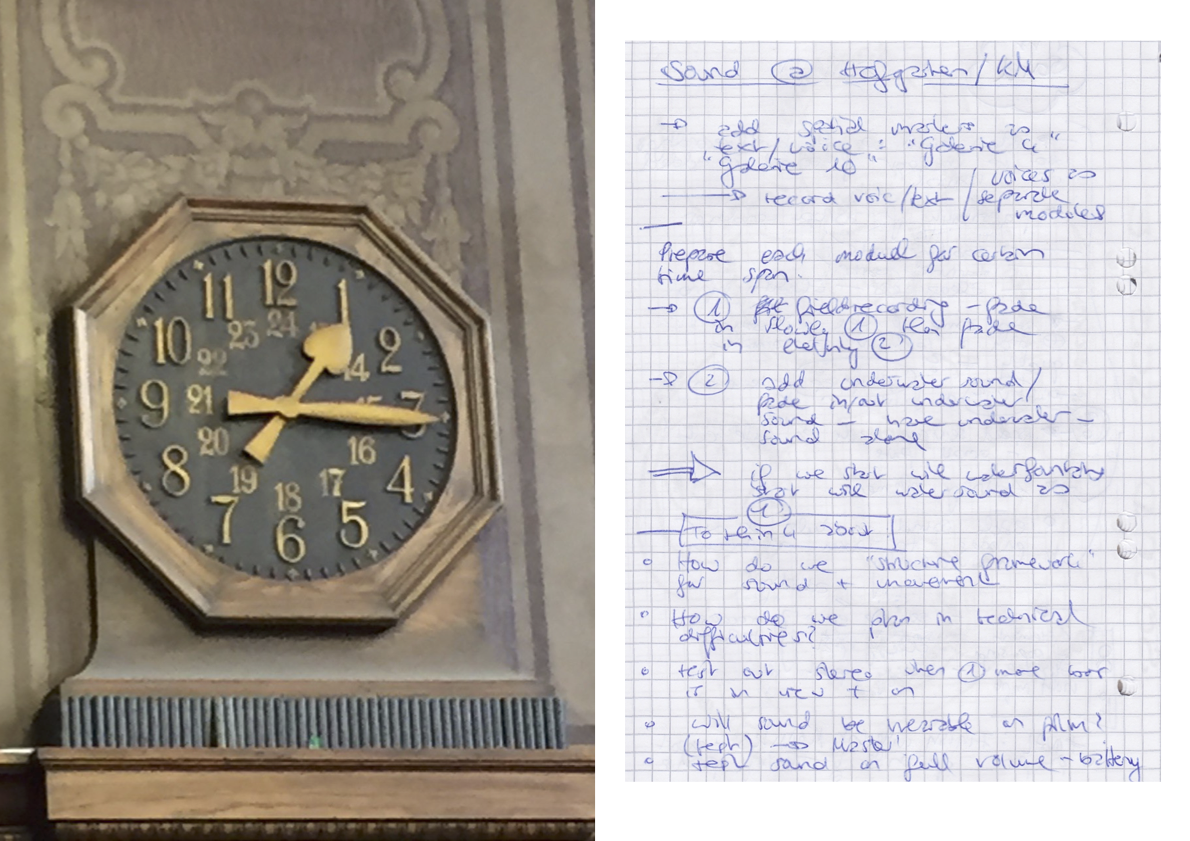 12
11
1
24
23
10
2
22
14
9
21
3
20
16
8
4
19
17
18
7
5
6
Sound @ Hofgarten/KM
→ add serial modes
text/voice: "Galerie 4"
"Galerie 10"
→ record voic/text / voices
separate
modules
Prepare each modul for certain
time span.
→ ① fieldrecording - fade
in ① then fade
in ②
→ ② add underwater sound/
fade in/out underwater
sound - have underwater -
sound alone
⇒ if we start with
start with watersound
①
To think about
• How do we "structure framework"
for sound + movement
• How do we plan in technical
difficulties?
• test out stereo when ① more
is in view +
• will sound be hearable on film?
(test) →
• test sound on full volume - battery